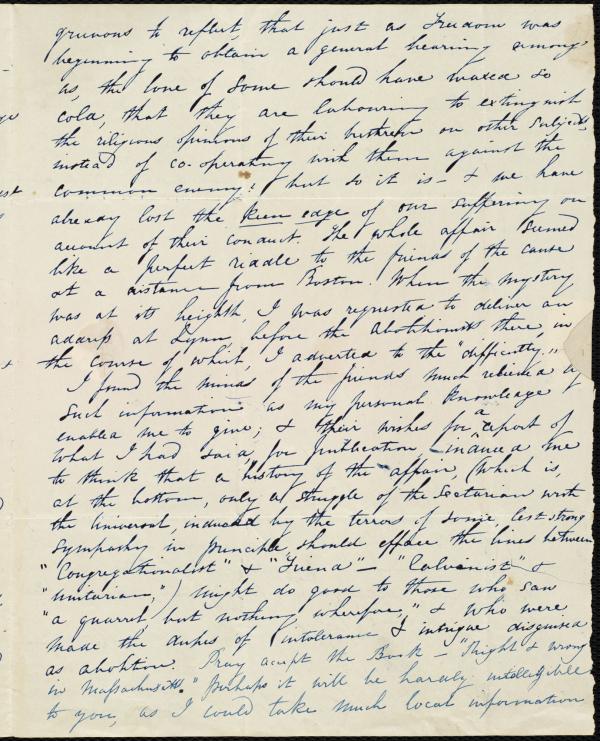 grievous to reflect, that just as Freedom was
beginning to obtain a general hearing among
us, the love of some should have waxed so
cold, that they are labouring to extinguish
the religious opinions of their brethren on other subjects,
instead of co-operating with them against the
common enemy: but so it is – & we have
already lost the keen edge of our suffering on
account of their conduct. The whole affair seemed
like a perfect riddle to the friends of the cause
at a distance from Boston. When the mystery
was at its heighth, I was requested to deliver an
address at Lynn, before the Abolitionists there, in
the course of which, I adverted to the "difficulty."
I found the minds of the friends much relieved by
such information as my personal knowledge
enabled me to give; & their wishes for a report of
what I had said, for publication, induced me
to think that a history of the affair, (which is,
at the bottom, only a struggle of the Sectarian with
the Universal, induced by the terrors of some, lest strong
sympathy in principle, should efface the lines between
"Congregationalist" & "Friend" – "Calvinist" &
"Unitarian,") might do good to those who saw
"a quarrel, but nothing wherefore," & who were
made the dupes of intolerance & intrigue disguised
as abolition. Pray accept the Book – "Right & wrong
in Massachusetts." Perhaps it will be hardly intelligible
to you, as I could take much local information